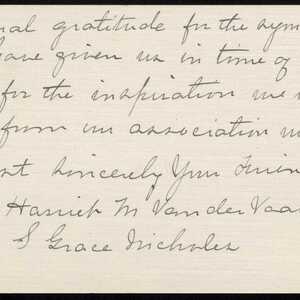 nal gratitude for the sym
have given us in time of
for the inspiration we
from our association
st sincerely Your Frien
Harriet M Van der Vaa
S Grace Nicholes